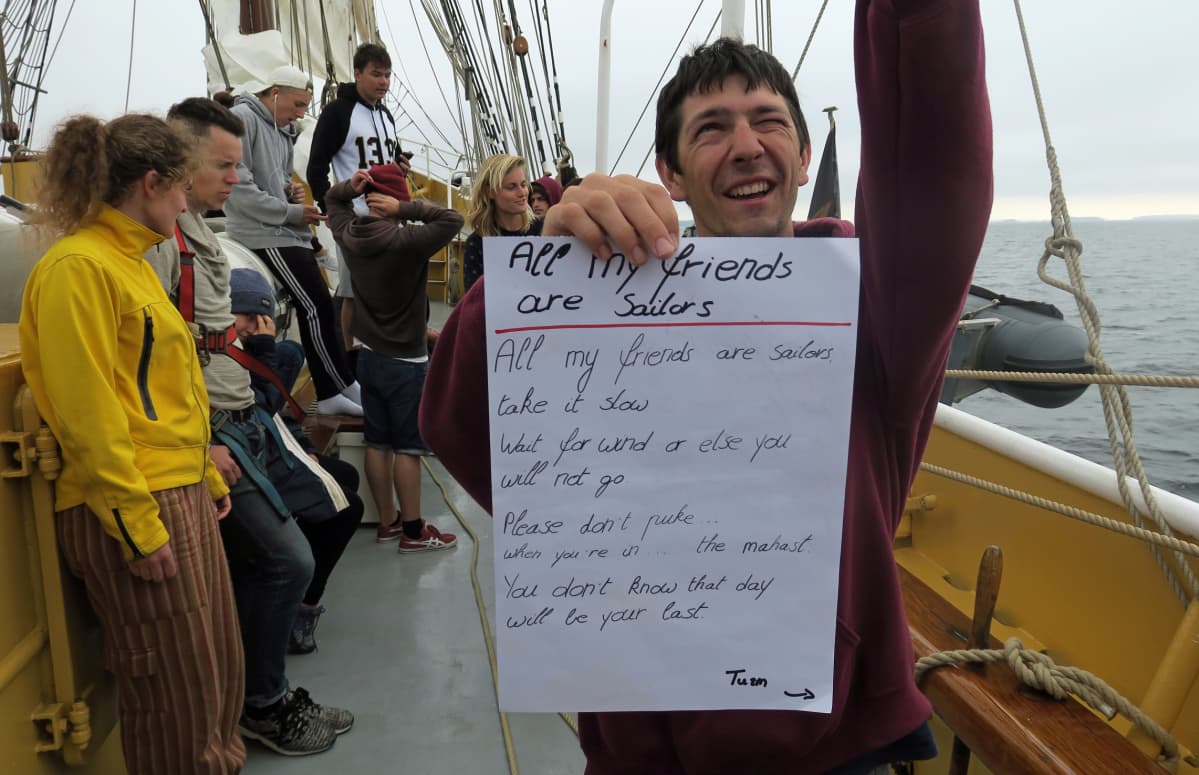 All my friends
are Sailors
All my friends are sailors,
take it slow
Wait for wind or else you
will not go
Please don't puke...
when you're in... the mahast.
You don't know that day
will be your last.
Turn →
13